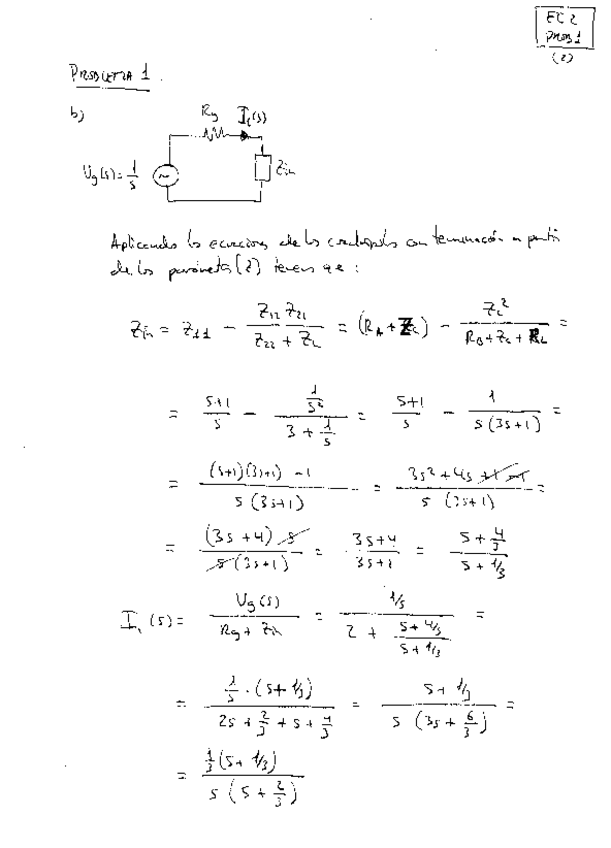 EC 2
PROB 1
(2)
PROBLEMA 1.
b)
Rg I₁(s)
Vg(s) = 1/s
Zin
Aplicando las ecuaciones de los cuadripolos con terminación a partir
de los parámetros [Z] tenemos que:
Zin = Z11 - (Z12 Z21)/(Z22 + ZL) = (RA + Zc) - Zc²/(RB + Zc + RL) =
= (s+1)/s - (1/s²)/(3 + 1/s) = (s+1)/s - 1/(s(3s+1)) =
= ((s+1)(3s+1) - 1)/(s(3s+1)) = (3s² + 4s + 1 - 1)/(s(3s+1)) =
= ((3s+4) s)/(s(3s+1)) = (3s+4)/(3s+1) = (s + 4/3)/(s + 1/3)
I₁(s) = Vg(s)/(Rg + Zin) = (1/s)/(2 + (s + 4/3)/(s + 1/3)) =
= (1/s · (s + 1/3))/(2s + 2/3 + s + 4/3) = (s + 1/3)/(s (3s + 6/3)) =
= (1/3 (s + 1/3))/(s (s + 2/3))